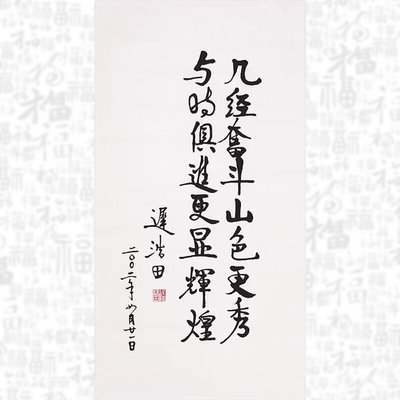 几经奋斗山色更秀
与时俱進更显輝煌
遲浩田
二〇〇二年七月廿一日